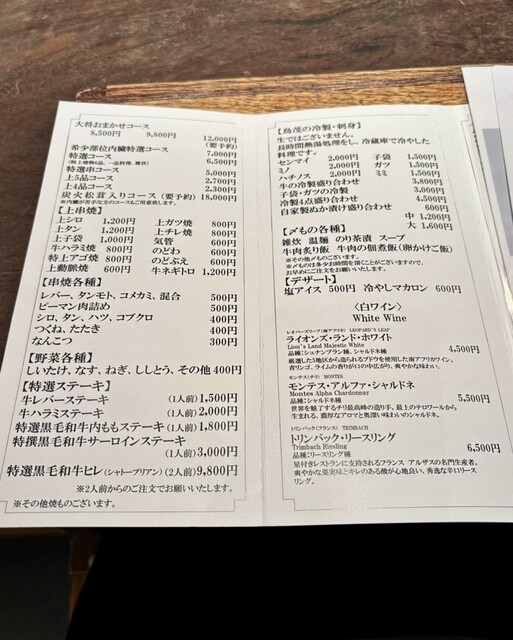 大将おまかせコース
8,500円 9,800円 12,000円
希少部位内臓特選コース (要予約)
特選コース 7,000円
(特上焼物6品、一品料理、雑炊) 6,500円
特選串コース 5,000円
上5品コース 2,700円
上4品コース 2,300円
炭火松茸入りコース(要予約)18,000円
※内臓が苦手な方のコースもご用意致します。
【上串焼】
上シロ 1,200円 上ガツ焼 800円
上タン 1,200円 上チレ焼 800円
上子袋 1,000円 気管 600円
牛ハラミ焼 800円 のどわ 600円
特上アゴ焼 800円 のどぶえ 600円
上動脈焼 600円 牛ネギトロ 1,200円
【串焼各種】
レバー、タンモト、コメカミ、混合 500円
ピーマン肉詰め 500円
シロ、タン、ハツ、コブクロ 400円
つくね、たたき 400円
なんこつ 300円
【野菜各種】
しいたけ、なす、ねぎ、ししとう、その他 400円
【特選ステーキ】
牛レバーステーキ (1人前)1,500円
牛ハラミステーキ (1人前)2,000円
特選黒毛和牛内ももステーキ(1人前)1,800円
特撰黒毛和牛サーロインステーキ
(1人前)3,000円
特選黒毛和牛ヒレ(シャトーブリアン)(2人前)9,800円
※2人前からのご注文でお願いいたします。
※その他焼ものございます。
【鳥茂の冷製・刺身】
生ではございません。
長時間熱湯処理をし、冷蔵庫で冷やした
料理です。
センマイ 2,000円 子袋 1,500円
ミノ 2,000円 ガツ 1,500円
ハチノス 2,000円 ミミ 1,500円
牛の冷製盛り合わせ 3,800円
子袋・ガツの冷製 3,000円
冷製4点盛り合わせ 4,500円
自家製ぬか漬け盛り合わせ 600円
中 1,200円
大 1,600円
【〆もの各種】
雑炊 温麺 のり茶漬 スープ
牛肉炙り飯 牛肉の佃煮飯(卵かけご飯)
※その他〆もございます。
※〆ものは多少お時間を頂くことがございますので、
お早めにご注文をお願いいたします。
【デザート】
塩アイス 500円 冷やしマカロン 600円
〈白ワイン〉
White Wine
レオパーズリープ(南アフリカ) LEOPARD'S LEAP
ライオンズ・ランド・ホワイト
Lion's Land Majestic White
品種:シュナンブラン種、シャルドネ種 4,500円
厳選した5地区から造られるブドウを使用した南アフリカワイン。
青リンゴ、ライムの香りが口の中広がり、爽やかな味わい。
モンテス(チリ) MONTES
モンテス・アルファ・シャルドネ
Montes Alpha Chardonnay
品種:シャルドネ種 5,500円
世界を魅了するチリ最高峰の造り手。最上のテロワールから
生まれる、濃厚なアロマと奥深い味わいのシャルドネ。
トリンバック(フランス) TRIMBACH
トリンバック・リースリング
Trimbach Riesling
品種:リースリング種 6,500円
星付きレストランに支持されるフランス アルザスの名門生産者。
爽やかな果実味とキレのある酸が心地良い、秀逸な辛口リース
リング。